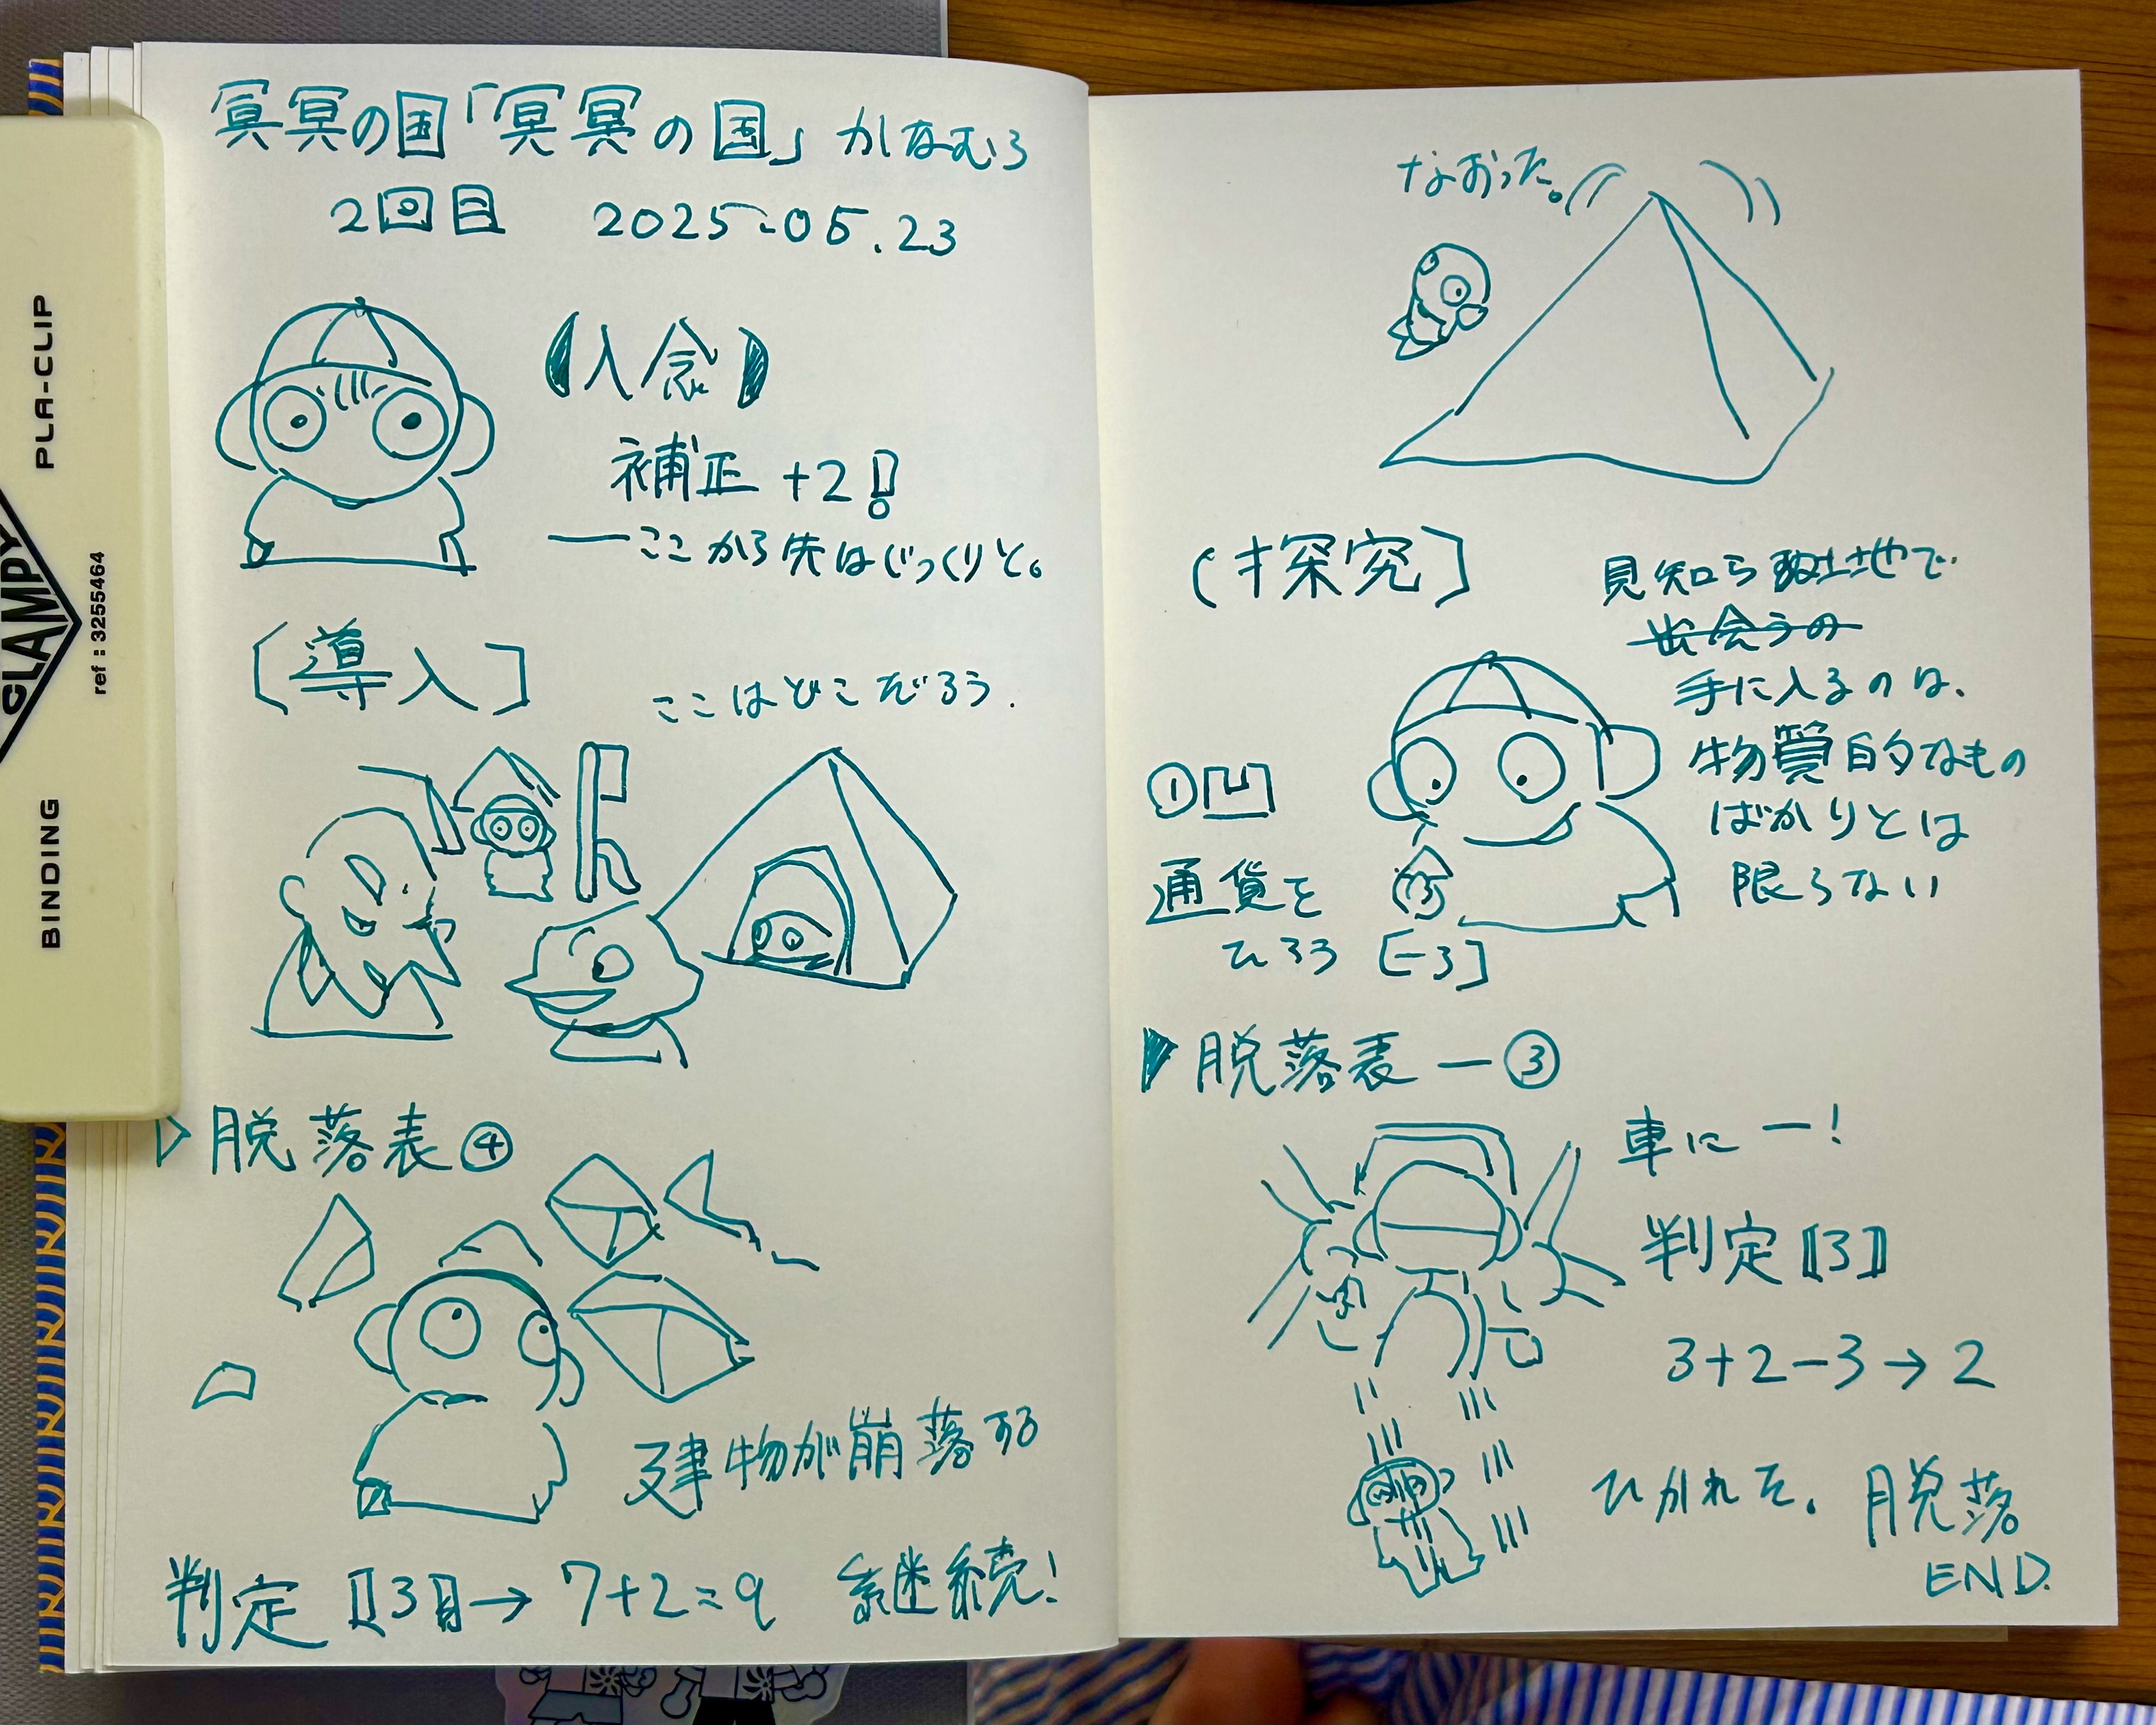 冥冥の国「冥冥の国」かなむろ
2回目 2025-05.23
【入念】
補正 +2!
――ここから先はじっくりと。
〔導入〕
ここはどこだろう.
▷脱落表④
建物が崩落する
判定【3】→ 7+2=9 継続!
なおった。
〔探究〕
見知らぬ土地で
出会うの
手に入るのは、
物質的なもの
ばかりとは
限らない
①凹
通貨を
ひろう [-3]
▶脱落表―③
車に―!
判定【3】
3+2-3→2
ひかれた。脱落
END.
PLA-CLIP
CLAMPY
ref : 3255464
BINDING